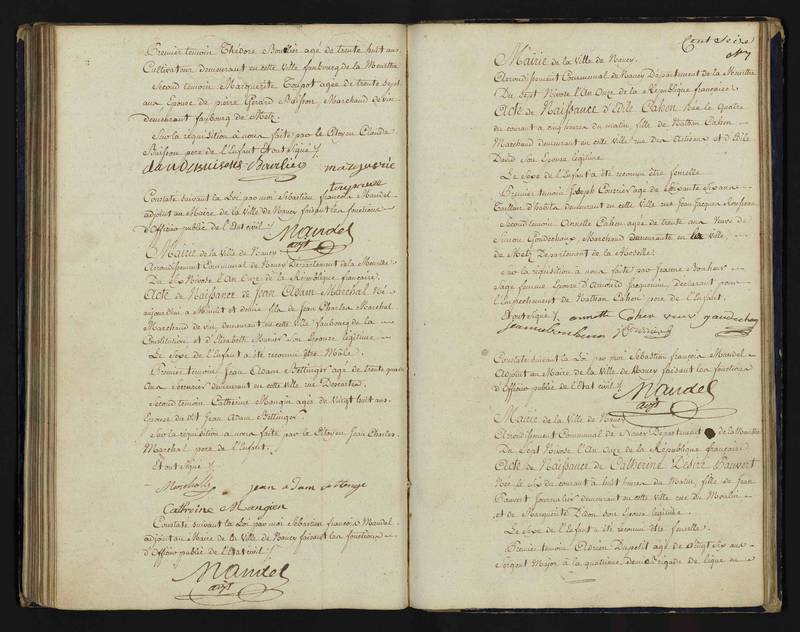 Premier temoin Thédore Boulier agé de trente huit ans
Cultivateur demeurant en cette Ville faubourg de la Meurthe
Second temoin Marguerite Toupot agée de trente sept
ans Epouse de pierre Gérard Buisson, Marchand de vin
demeurant faubourg de Metz.
Sur la réquisition à nous faite par le Citoyen Claude
Buisson pere de l'Enfant Et ont Signé
Constaté suivant la Loi par moi Sébastien françois Mandel
adjoint au Maire de la Ville de Nancy faisant les fonctions
d'Officier public de l'Etat civil
Mandel
adjt
Mairie de la Ville de Nancy
Arrondissement Communal de Nancy Département de la Meurthe
Du Sept Nivose l'An Onze de la République française
Acte de Naissance de Jean Adam Marchal Né
aujourd'hui à Minuit et demie fils de Jean Charles Marchal
Marchand de vin, demeurant en cette Ville faubourg de la
Constitution et d'Elisabeth Son Epouse légitime
Le Sexe de l'Enfant a été reconnu être Mâle.
Premier temoin Jean Adam Bettinger agé de trente quatre
ans Serrurier demeurant en cette Ville rue Descartes
Second temoin Catherine Mangin agée de Vingt huit ans
Epouse du dit Jean Adam Bettinger
Sur la réquisition a nous faite par le Citoyen Jean Charles
Marchal pere de l'Enfant
Et ont Signé
Constaté suivant la Loi par moi Sébastien françois Mandel
adjoint au Maire de la Ville de Nancy faisant les fonctions
d'Officier public de l'Etat civil
Mandel
adjt
Cent Seize
Mairie de la Ville de Nancy
Arrondissement Communal de Nancy Département de la Meurthe
Du Sept Nivose l'An Onze de la République française
Acte de Naissance d'Edile Cahen Née le Quatre
du courant à cinq heures du matin, fille de Nathan Cahen
Marchand demeurant en cette Ville rue des Artisans et d'Edile
David Son Epouse légitime
Le Sexe de l'Enfant a été reconnu être femelle
Premier temoin Joseph agé de Soixante Six ans
Tailleur d'habits demeurant en cette Ville rue Jean Jacques Rousseau
Second temoin Annette Cahen agée de trente ans Veuve de
Simon Goudechaux, Marchand demeurante en la Ville
de Metz Departement de la Moselle
Sur la réquisition à nous faite par Jeanne Bonheur
Sage femme Epouse d'Arnould Jacquemin, déclarant pour
l'Empechement de Nathan Cahen pere de l'Enfant
Et ont Signé
Constaté suivant la Loi par moi Sébastien françois Mandel
Adjoint au Maire de la Ville de Nancy faisant les fonctions
d'Officier public de l'Etat civil
Mandel
adjt
Mairie de la Ville de Nancy
Arrondissement Communal de Nancy Departement de la Meurthe
Du Sept Nivose l'An Onze de la République française
Acte de Naissance de Catherine Désiré Hauvert
Née le Six du courant à huit heures du Matin, fille de Jean
Hauvert Journalier demeurant en cette Ville rue du Moulin
et de Marguerite Didon son Epouse légitime
Le Sexe de l'Enfant a été reconnu être femelle.
Premier temoin Adrien Dupetit agé de Vingt Six ans
Sergent Major à la quatrieme demi Brigade de ligne en